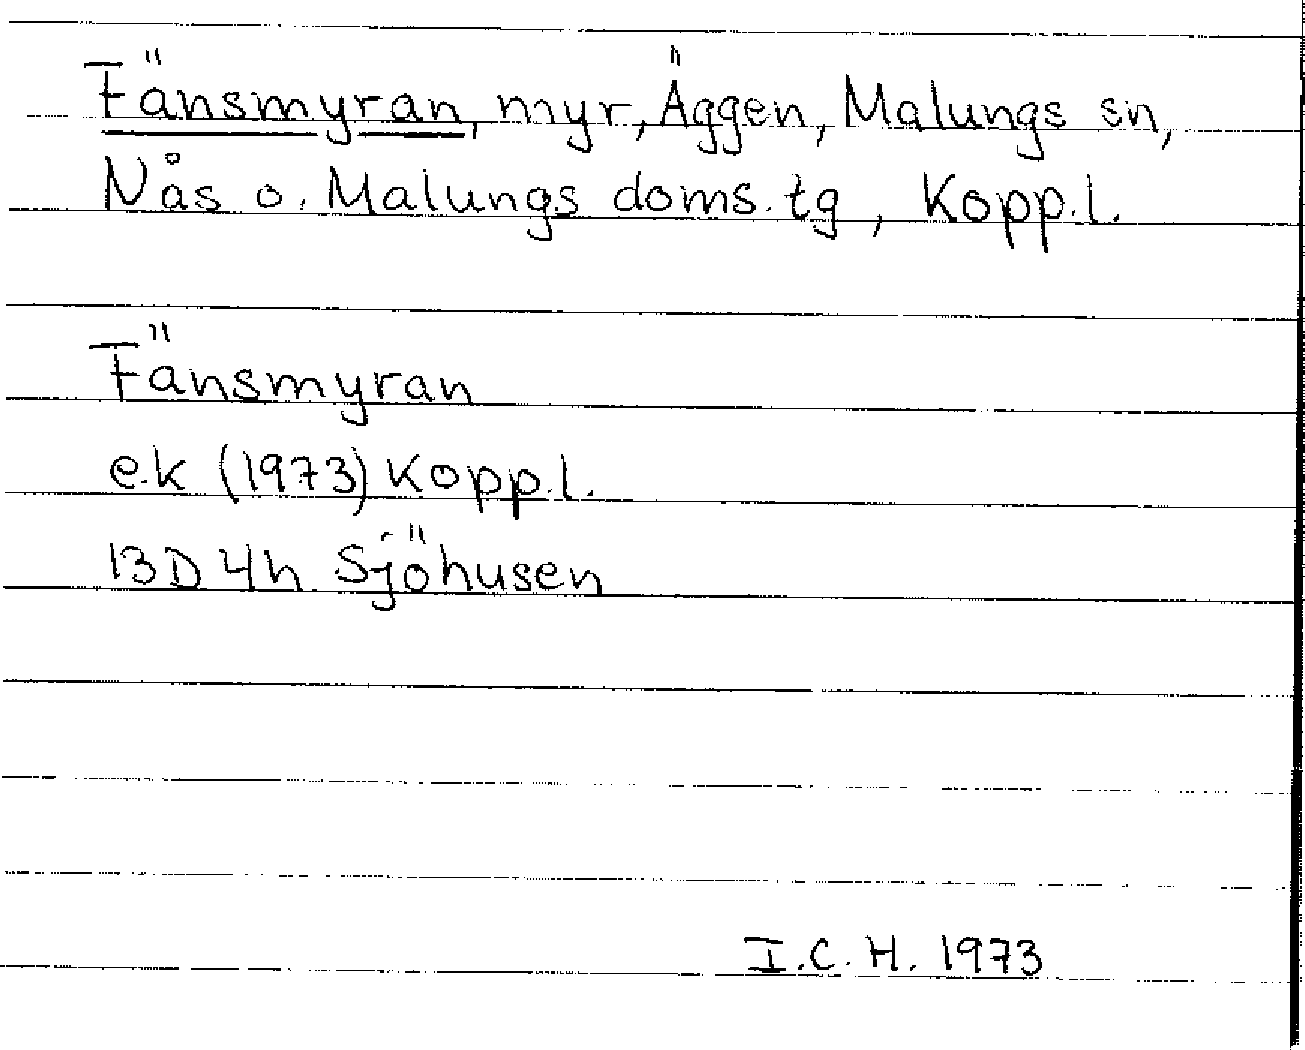 Fänsmyran, myr, Äggen, Malungs sn,
Nås o. Malungs doms. tg, Kopp.l.
Fänsmyran
e.k (1973) Kopp.l.
13D 4h Sjöhusen
I.C.H. 1973